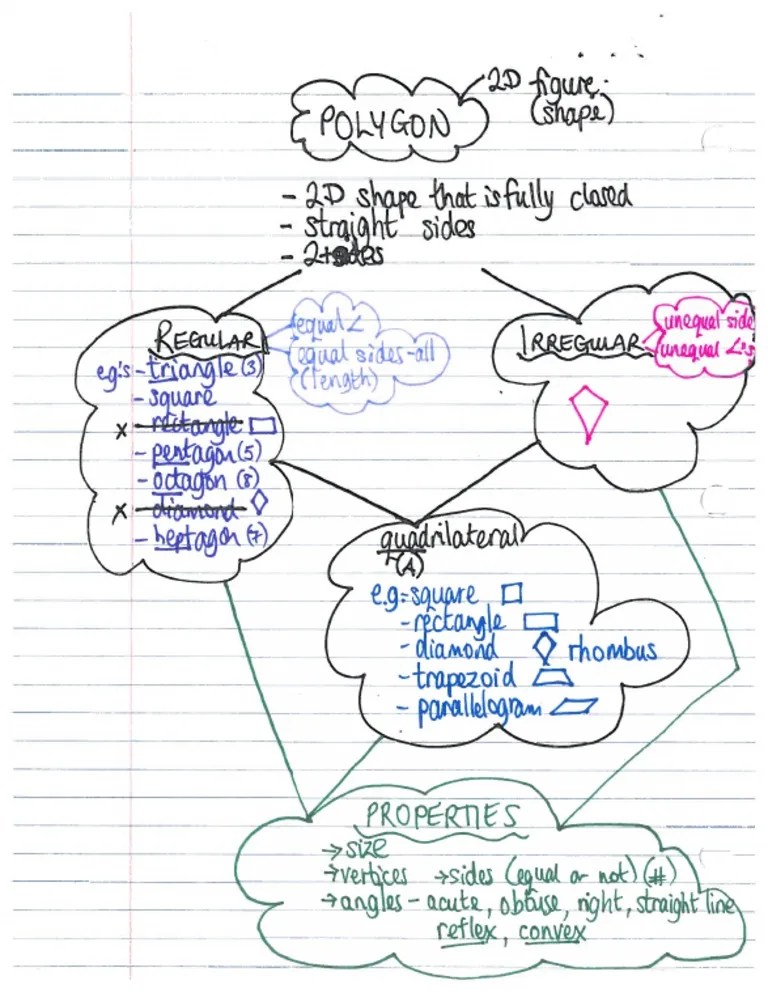 POLYGON
2D figure.
(shape)
- 2D shape that is fully closed
- straight sides
- 2+sides
REGULAR
equal ∠
equal sides-all
(length)
eg's - triangle (3)
- square
x - rectangle
- pentagon (5)
- octagon (8)
x - diamond
- heptagon (7)
IRREGULAR
unequal side
unequal ∠'s
quadrilateral
(4)
e.g - square
- rectangle
- diamond rhombus
- trapezoid
- parallelogram
PROPERTIES
→ size
→ vertices → sides (equal or not) (#)
→ angles - acute, obtuse, right, straight line
reflex, convex